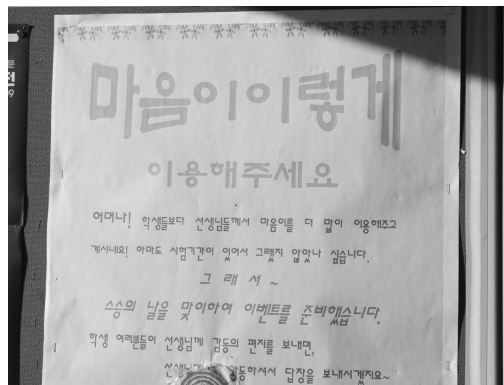 마음이이렇게
이용해주세요
어머나! 학생들보다 선생님들께서 마음이를 더 많이 이용해주고
계시네요! 아마도 시험기간이 있어서 그랬지 않았나 싶습니다.
그 래 서 ~
스승의 날을 맞이하여 이벤트를 준비했습니다.
학생 여러분들이 선생님께 감동의 편지를 보내면,
선생님께 감동하셔서 답장을 보내시겠지요~